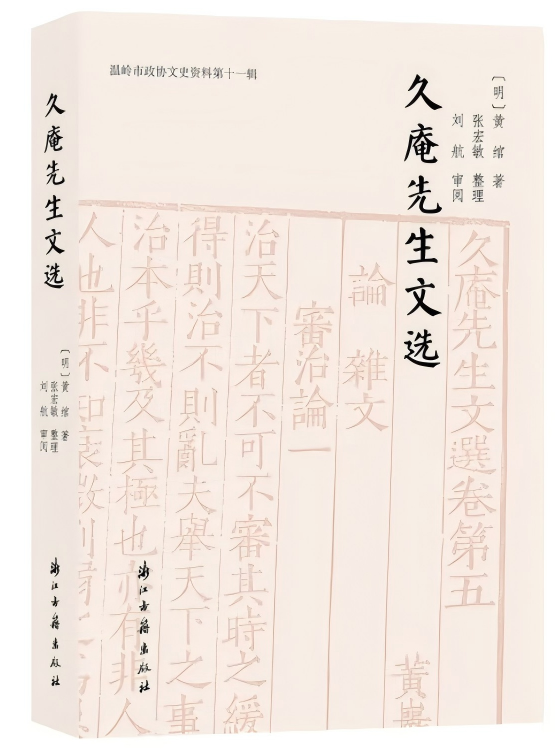 温岭市政协文史资料第十一辑
〔明〕黄 绾 著
张宏敏 整理
刘 航 审阅
久庵先生文选
浙江古籍出版社
久庵先生文選卷第五
黄
論 雜文
審治論一
治天下者不可不審其時之緩
得則治不則亂夫舉天下之事
治本乎幾及其極也亦有非人
人也非不知
久庵先生文选
〔明〕黄 绾 著
张宏敏 整理
刘 航 审阅
浙江古籍出版社